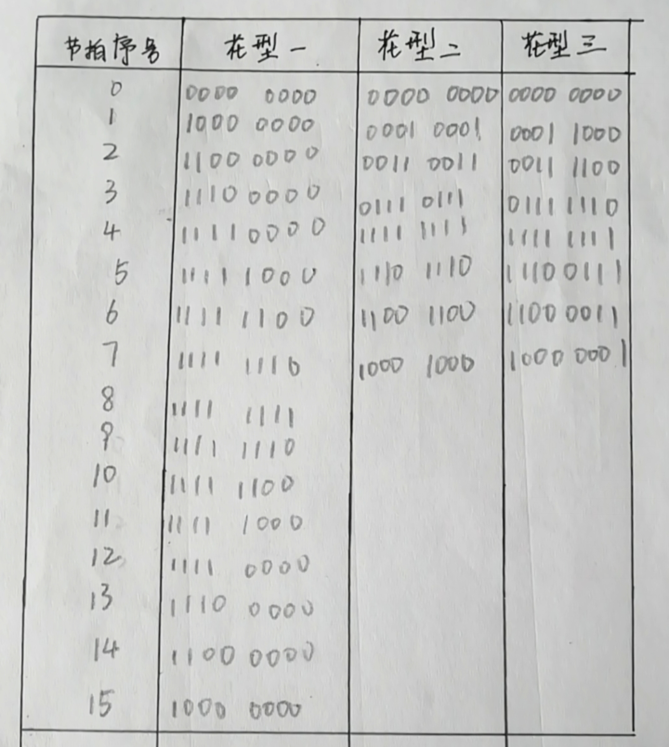 节拍序号 花型一 花型二 花型三
0 0000 0000 0000 0000 0000 0000
1 1000 0000 0001 0001 0001 1000
2 1100 0000 0011 0011 0011 1100
3 1110 0000 0111 0111 0111 1110
4 1111 0000 1111 1111 1111 1111
5 1111 1000 1110 1110 1110 0111
6 1111 1100 1100 1100 1100 0011
7 1111 1110 1000 1000 1000 0001
8 1111 1111
9 1111 1110
10 1111 1100
11 1111 1000
12 1111 0000
13 1110 0000
14 1100 0000
15 1000 0000